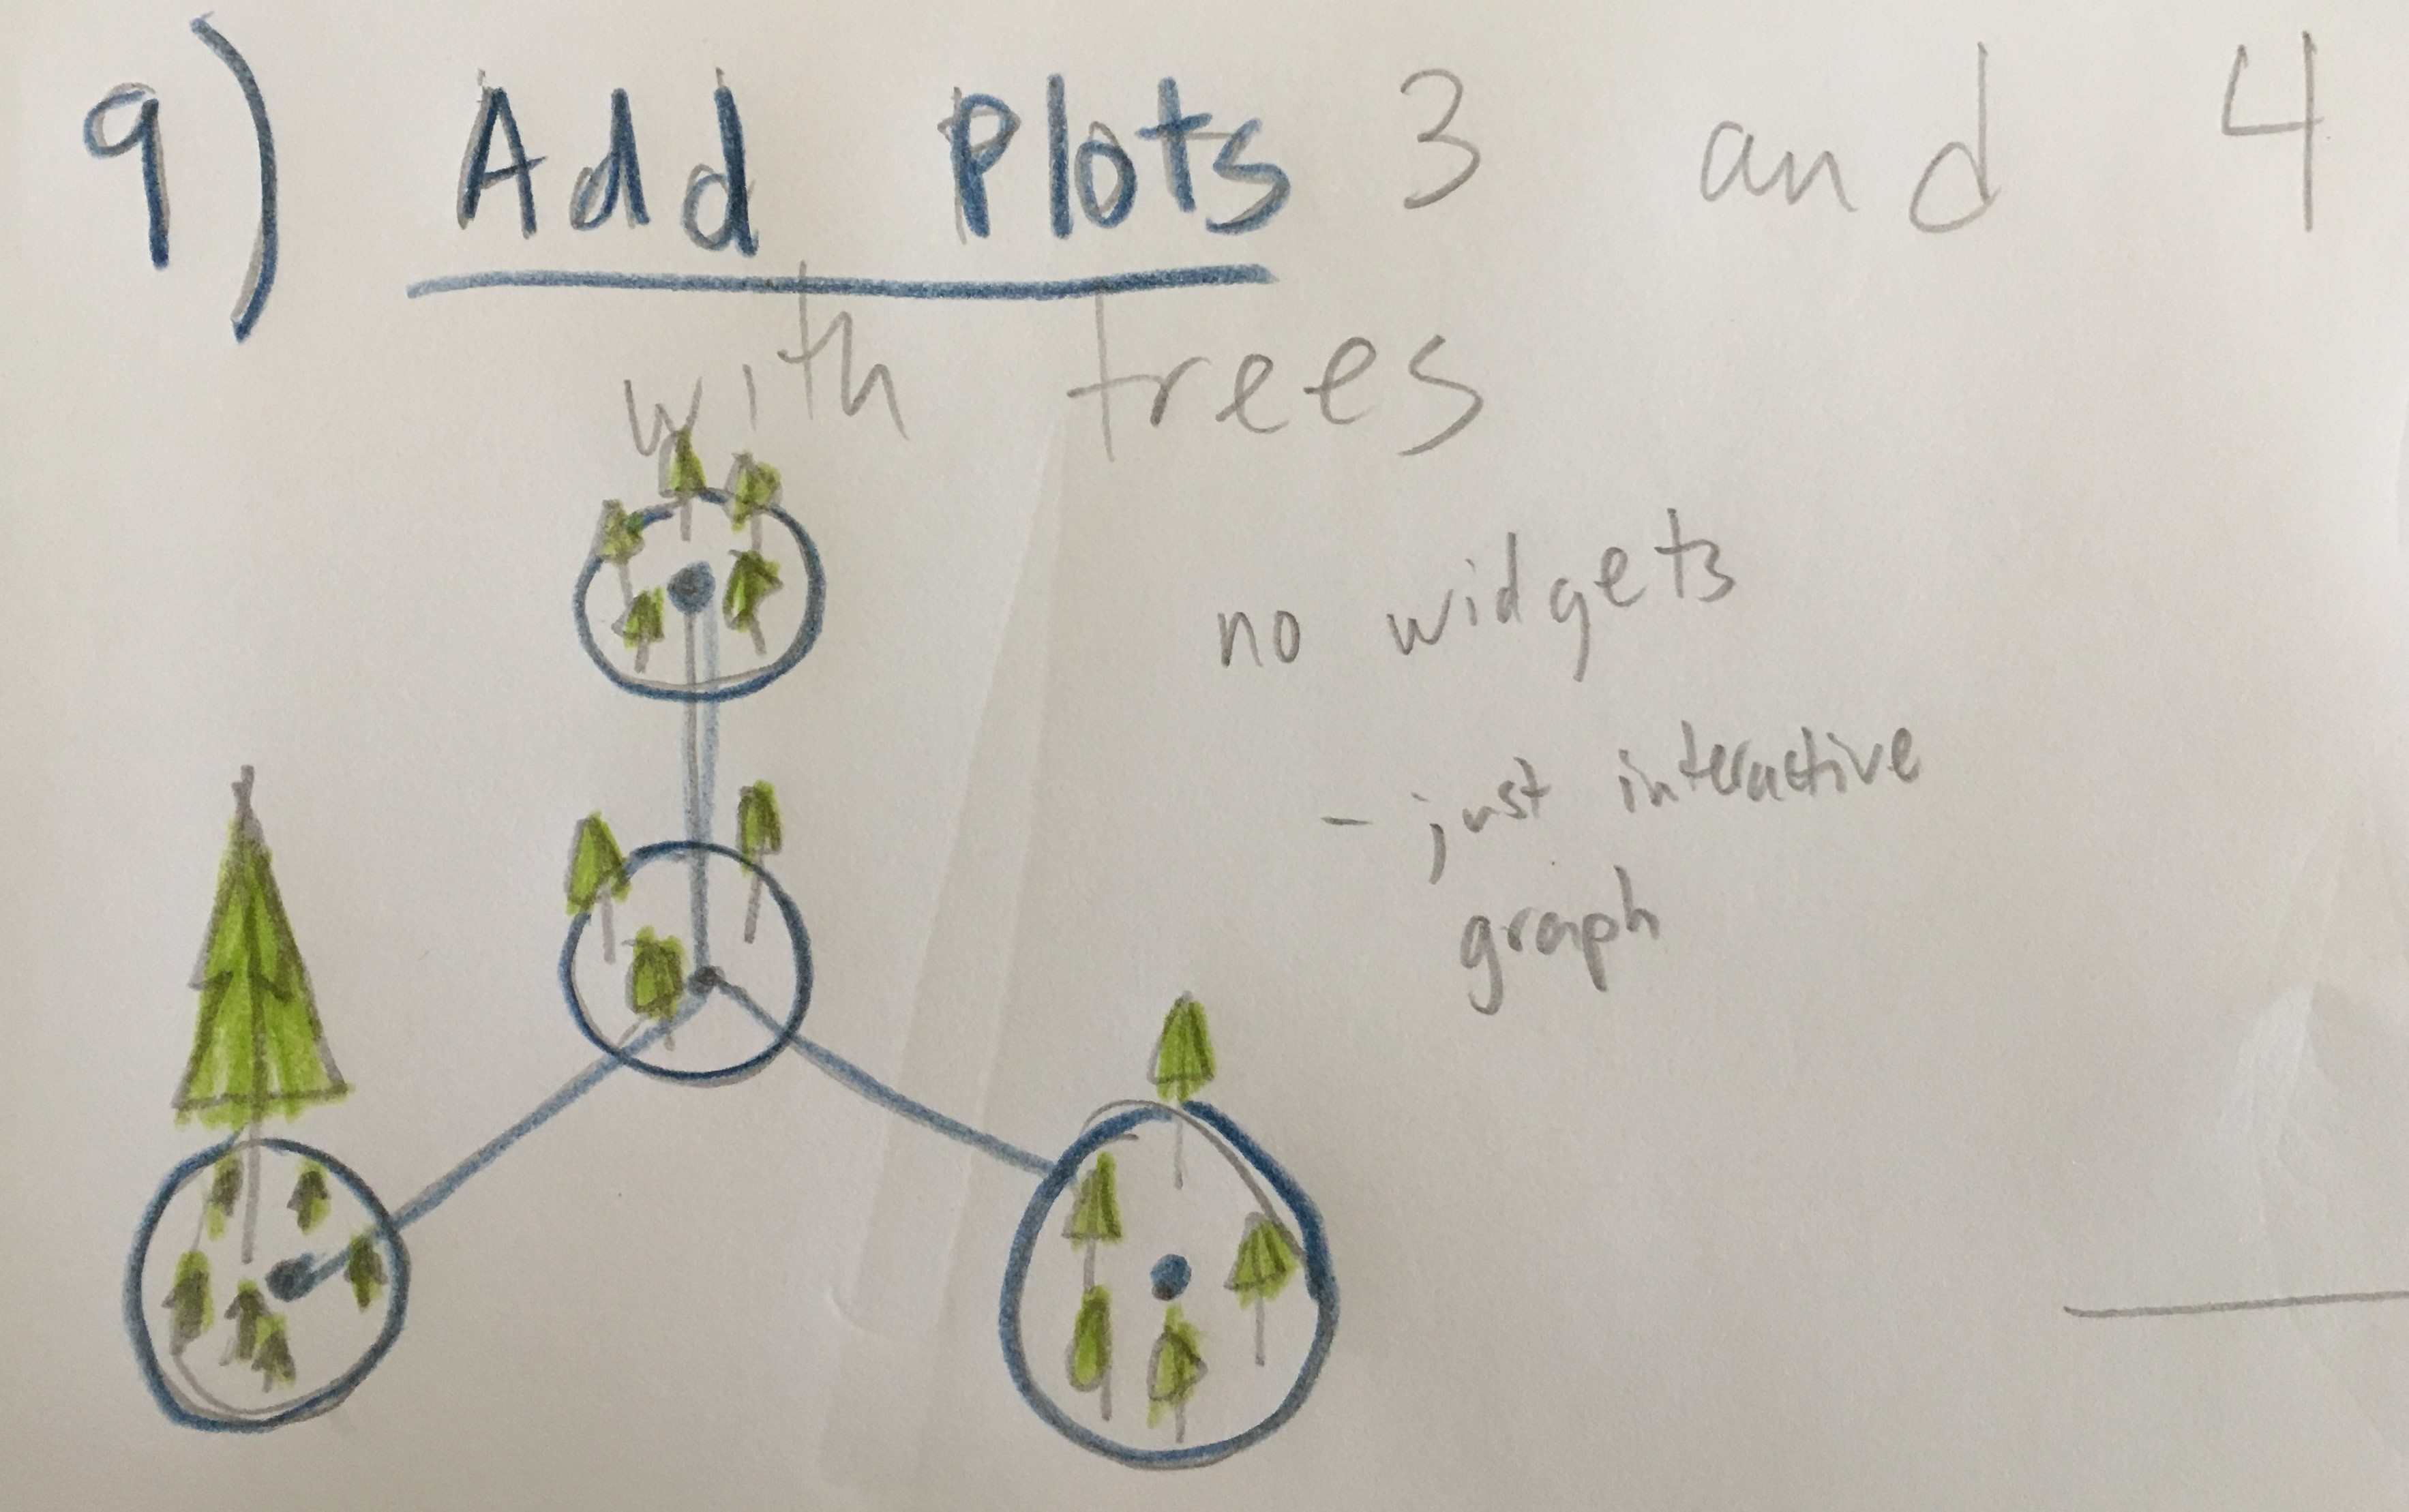 9) Add Plots 3 and 4
with trees
no widgets
- just interactive
graph